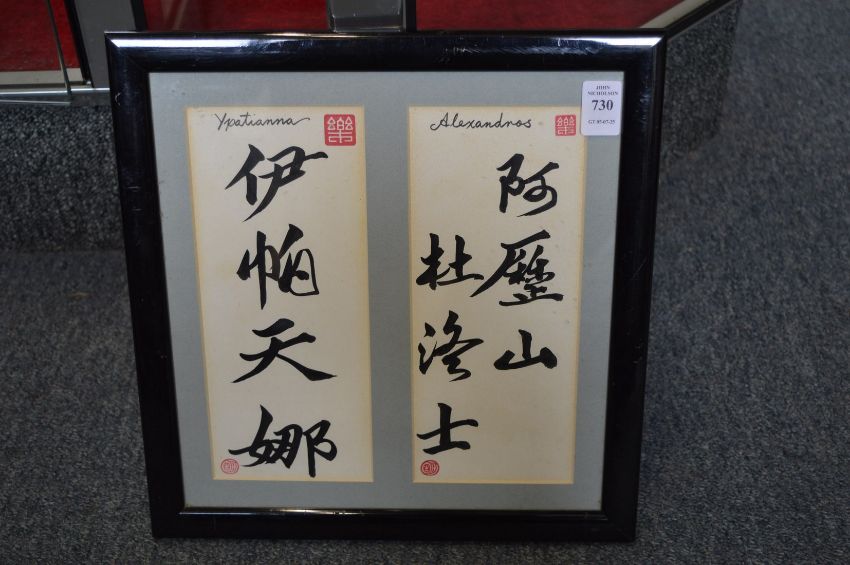 Ypatianna
伊帕天娜
Alexandros
阿歷山
杜洛士
JOHN
NICHOLSON
730
GT 05-07-25